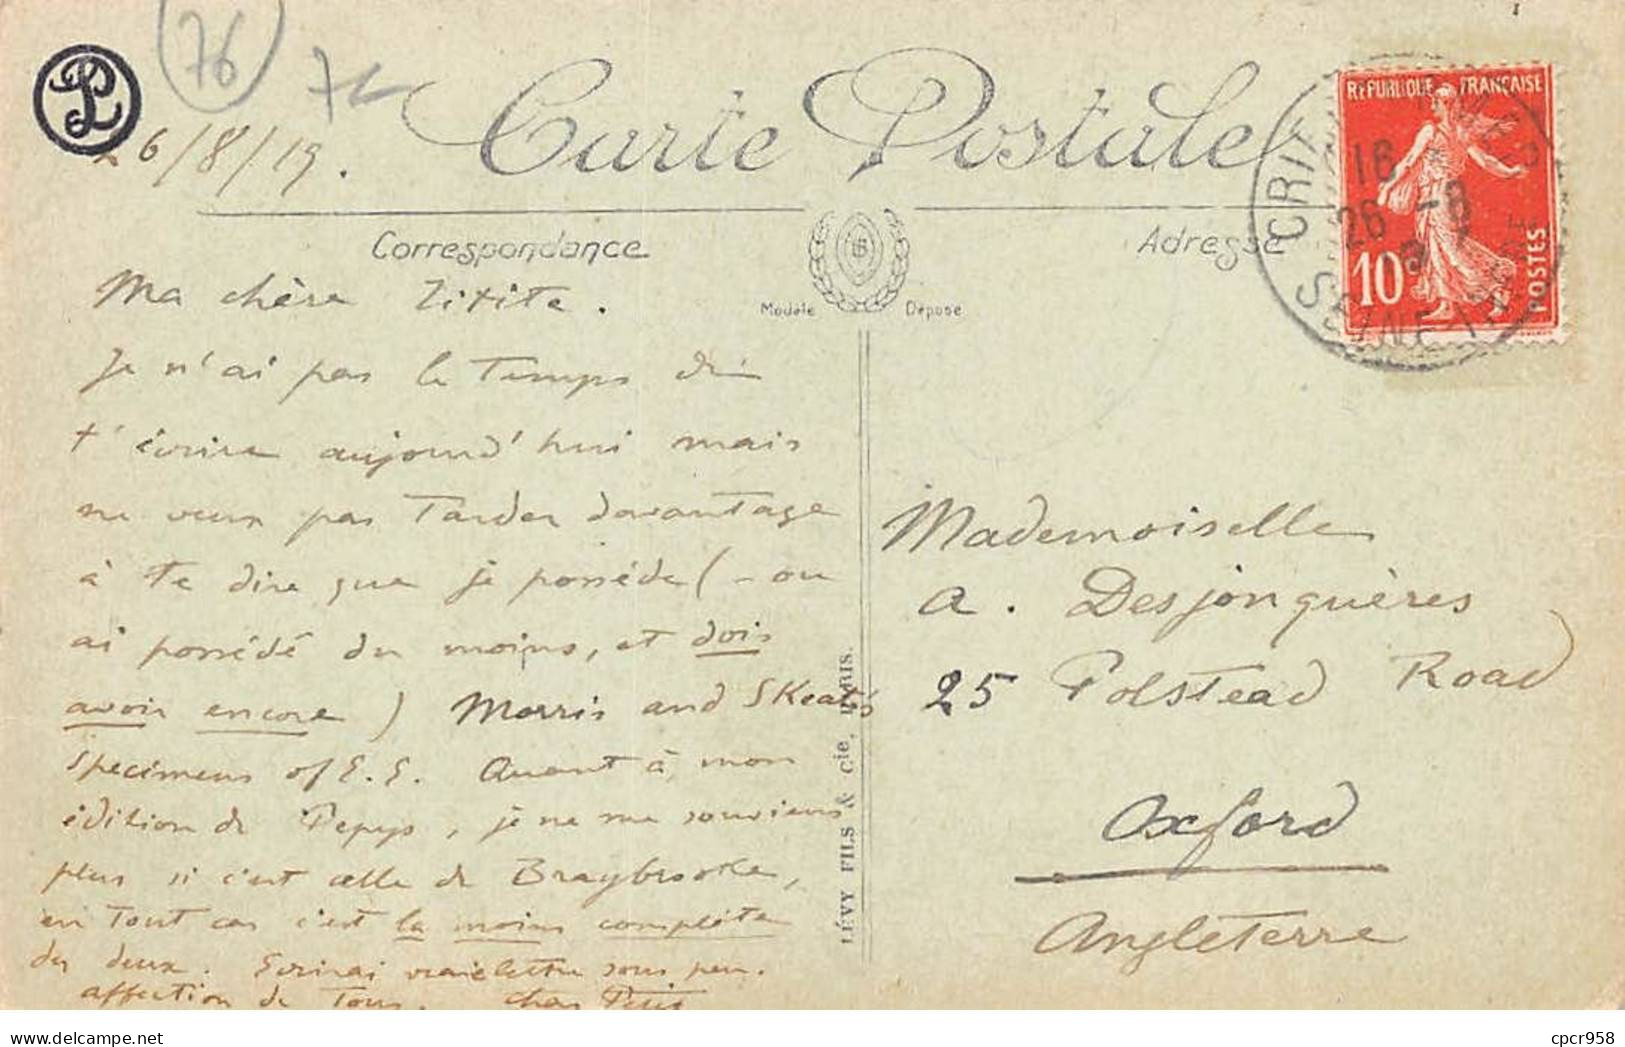 76
26/8/19.
Carte Postale
RÉPUBLIQUE FRANÇAISE
10
POSTES
CRIEL
16
26 -8
SEINE INFRE
Correspondance
Adresse
Modèle Déposé
Ma chère Titite.
Je n'ai pas le temps de
t'écrire aujourd'hui mais
ne veux pas tarder davantage
à te dire que je possède (- ou
ai possédé du moins, et dois
avoir encore) Morris and Skeat's
Specimens of E. E. Quant à mon
édition de Pepys, je ne me souviens
plus si c'est celle de Braybrooke,
en tout cas c'est la moins complète
des deux. Écrirai vraie lettre sous peu.
affection de Tous.
LÉVY FILS & Cie, PARIS.
Mademoiselle
A. Desjonquères
25 Polstead Road
Oxford
Angleterre
cpcr958